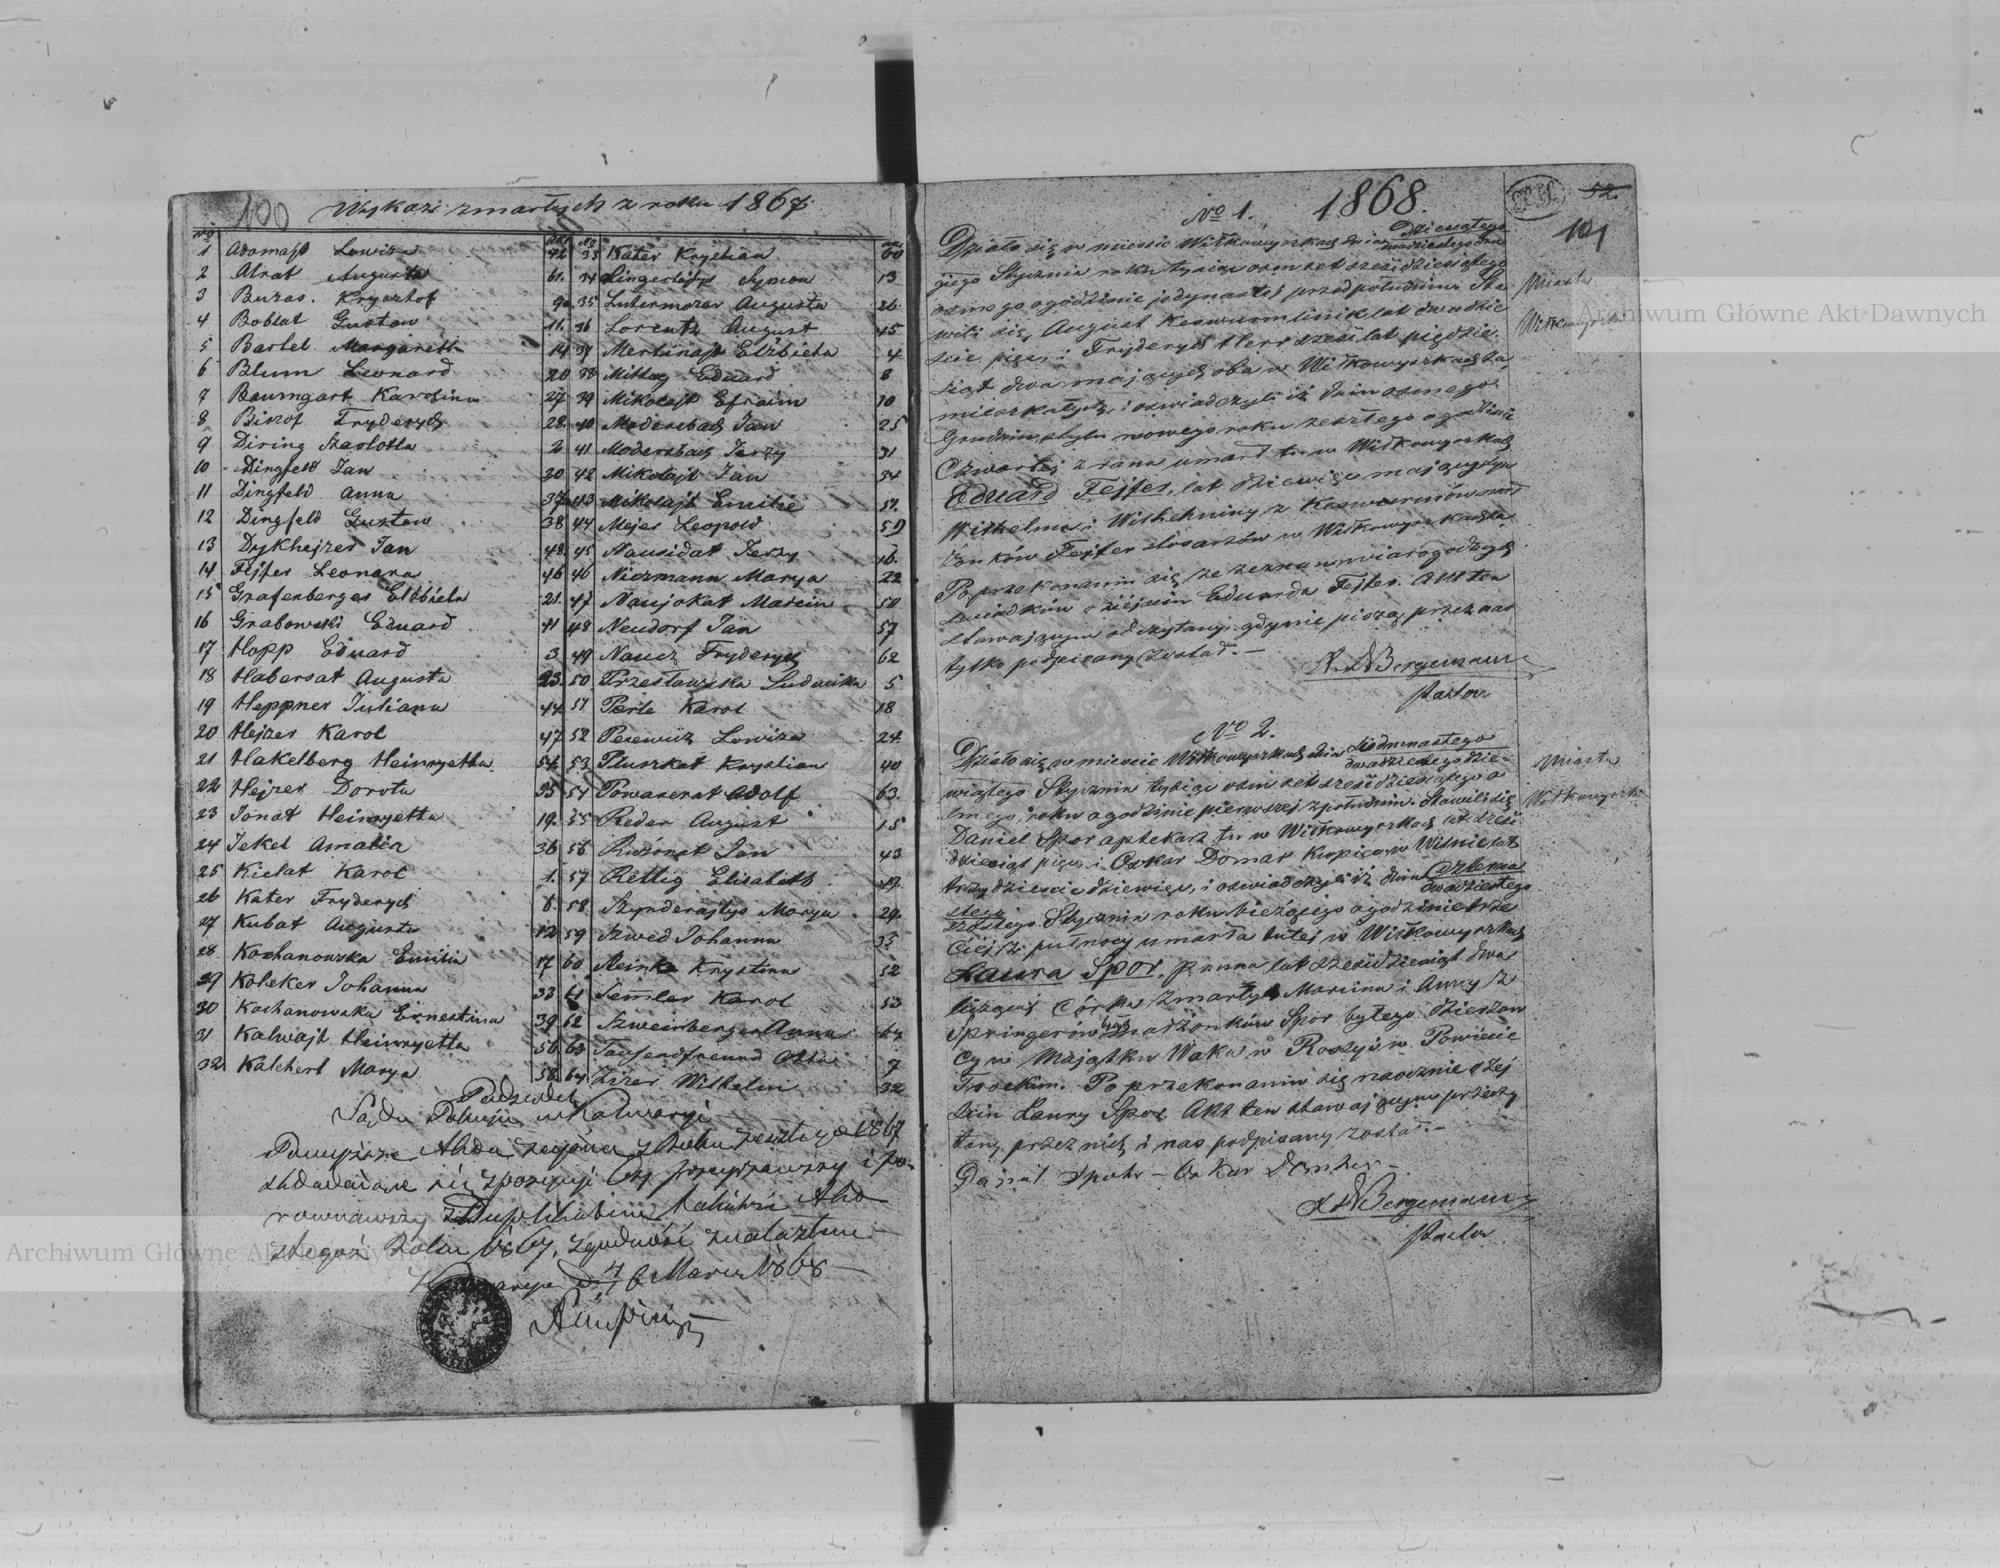 100
Wykaz zmarłych z roku 1867
No Akt No
1 Adomajt Lowiza 42 33 Kater Krystian 60
2 Atrat Augusta 61. 34 Lingertajt Symon 13
3 Buzas. Krysztof 9a 35 Lutermozer Augusta 26.
4 Boblat Gustaw 11. 36 Lorentz August 45
5 Bartel Margaretta 14 37 Mertinajt Elżbieta 4
6 Blum Leonard 20 38 Mittag Eduard 8
7 Baumgart Karolina 27 39 Mikolajt Efraim 10
8 Bizof Fryderych 28. 40 Moderbach Jan 25
9 Diring Szarlotta 2 41 Moderbach Jerzy 31
10 Dingfeld Jan 30 42 Mikolajt Jan 34
11 Dingfeld Anna 37 43 Mikolajt Emilie 51.
12 Dingfeld Gustaw 38 44 Mejer Leopold 59
13 Dykhejzer Jan 48. 45 Nausidat Jerzy 16.
14 Fejfer Leonara 46 46 Niezmann Marya 22
15 Grafenberger Elżbieta 21. 47 Naujokat Marcin 50
16 Grabowski Eduard 41 48 Neudorf Jan 57
17 Hopp Eduard 3 49 Nauez Fryderych 62
18 Habersat Augusta 23. 50. Przestawska Ludwika 5
19 Heppner Julianna 44. 51 Perle Karol 18
20 Hejzer Karol 47 52 Pezewicz Lowiza 24.
21 Hakelberg Heinryetta 54. 53 Pluszkat Krystian 40
22 Hejzer Dorota 55 54 Powaserat Adolf 63.
23 Jonat Heinryetta 19. 55 Reder August 15
24 Jekel Amalia 36 56 Ruzonet Jan 43
25 Kielat Karol 1. 57 Rettig Elisabeth 49.
26 Kater Fryderych 6. 58 Szynderajtys Marya 29.
27 Kubat Augusta 12 59 Szwed Johanna 35
28 Kochanowska Emilia 17 60 Steinke Krystina 52
29 Koleker Johanna 33 61 Semler Karol 53
30 Kochanowska Ernestina 39 62 Szweinberger Anna 64
31 Kalwajt Heinryetta 56 63 Tausendfreund Otto 7
32 Kalchert Marya 58 64 Zizer Wilhelm 32
Podsędek
Sądu Pokoju w Kalwaryi
Powyższe Akta zejścia z Roku zeszłego 1867
składające się z pozycyi 64 przejrzawszy i po-
rownawszy z Duplikatem takichże Akt
z tegoż Roku 1867, zgodność znalazłem
d. 4/16 Marca 1868
No 1. 1868.
52.
101
Miasto
Wiłkowyszki
Działo się w mieście Wiłkowyszkach dnia Dziewiątego
dwudziestego pierw
szego Stycznia roku tysiąc osm set sześćdziesiątego
osmego o godzinie jedynastej przed południem. Sta
wili się, August Keswurm lat dwadzie
ścia pięć, i Fryderych Herr lat pięćdzie
siąt dwa mający, oba w Wiłkowyszkach za
mieszkałych, i oświadczyli iż dnia osmego
Grudnia, stylu nowego, roku zeszłego o godzinie
Czwartej z rana umarł tu w Wiłkowyszkach
Eduard Fejfer, lat dziewięć mający, syn
Wilhelma i Wilhelminy z Keswurmów mał
żonków Fejfer slosarzów w Wiłkowyszkach.
Po przekonaniu się ze zeznania wiarogodnych
świadków o zejściu Eduarda Fejfer. Akt ten
stawającym odczytany, gdy nie piszą, przez nas
tylko podpisany został. —
Bergemann
Pastor
No 2.
Miasto
Wiłkowyszki
Działo się w mieście Wiłkowyszkach dnia siedmnastego
dwudziestego dzie-
wiątego Stycznia tysiąc osm set sześćdziesiątego o
smego, roku o godzinie pierwszej z południa. Stawili się
Daniel Spor aptekarz tu w Wiłkowyszkach lat sześć
dziesiąt pięć, i Oskar Domar Kupiec w Wilnie lat
trzydzieście dziewięć, i oświadczyli iż dnia Czternas
tego
dwudziestego
szóstego Stycznia roku bieżącego o godzinie trze
ciej z północy umarła tutej w Wiłkowyszkach
Laura Spor, panna lat sześćdziesiąt dwa
licząca Córka zmarłych Marcina i Anny z
Springerów byłych małżonków Spor byłego dzierżaw
cy w Majątku Waka w Rossyi w Powiecie
Trockim. Po przekonaniu się naocznie o zej
ściu Laury Spor Akt ten stawającym przeczy
tany przez nich i nas podpisany został. —
Daniel Spohr — Oskar Domher —
Bergemann
Pastor
Archiwum Główne Akt Dawnych
Archiwum Główne Akt Dawnych